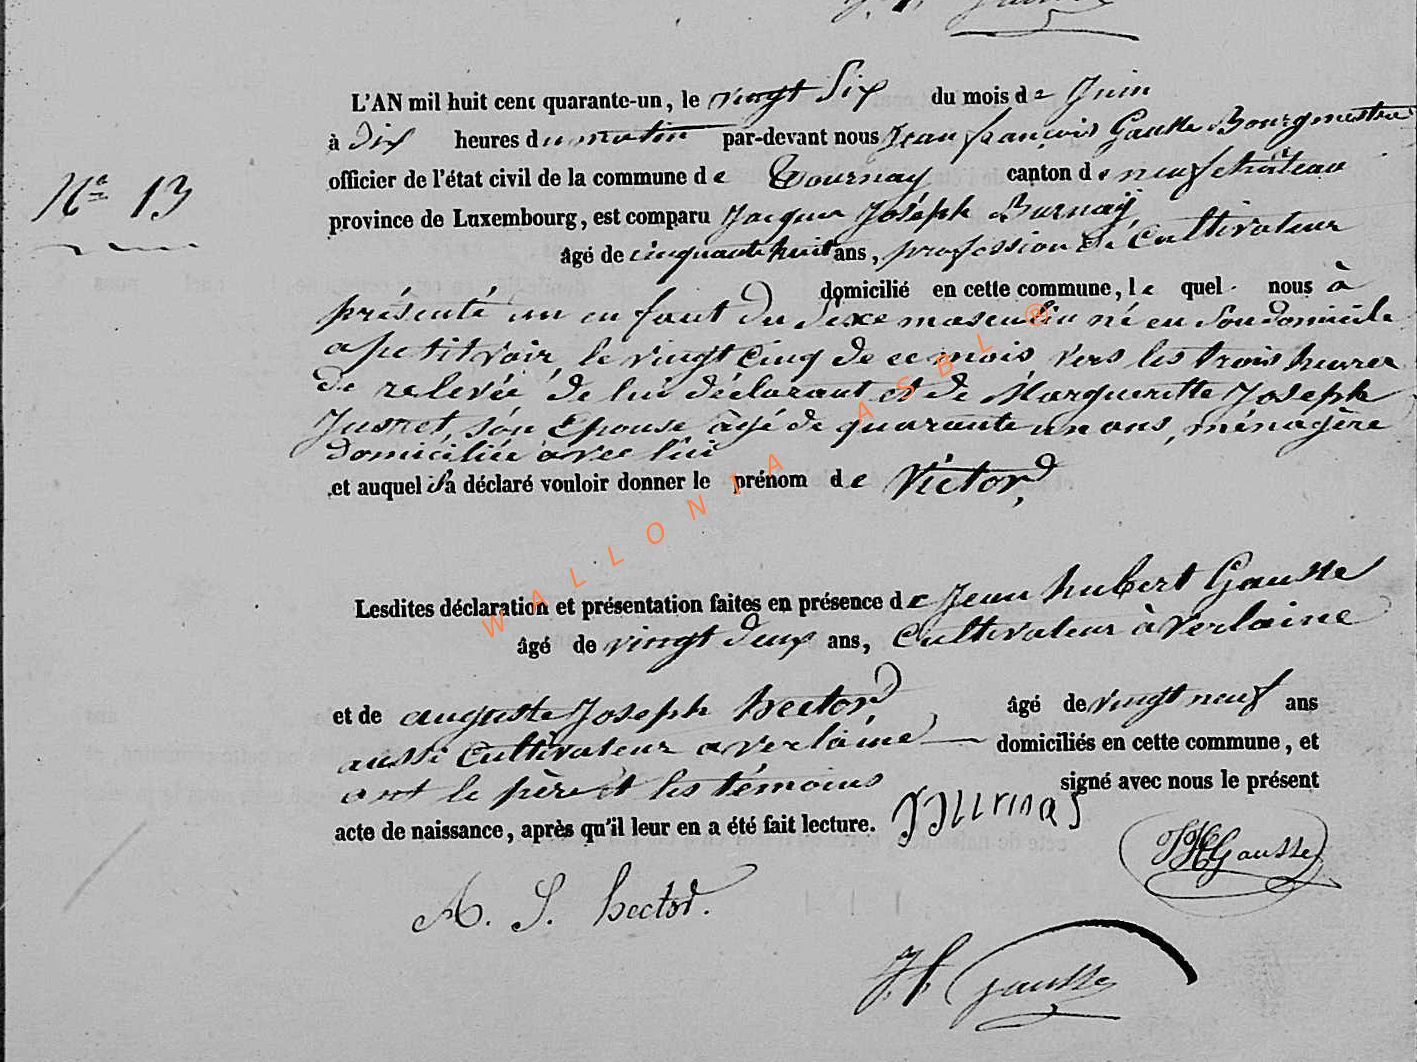 L'AN mil huit cent quarante-un, le vingt six du mois de Juin
à dix heures du matin par-devant nous Jean françois Gausse Bourgmestre
officier de l'état civil de la commune de Tournay canton de neufchâteau
N° 13
province de Luxembourg, est comparu Jacques Joseph Burnay
âgé de cinquante huit ans, profession de Cultivateur
domicilié en cette commune, le quel nous à
présenté un enfant du sexe masculin né en son domicile
a petitvoir, le vingt cinq de ce mois vers les trois heures
de relevée de lui déclarant et de Margueritte Joseph
Jusret, son Epouse âgé de quarante un ans, ménagère
domiciliée avec lui
et auquel il a déclaré vouloir donner le prénom de Victor,
Lesdites déclaration et présentation faites en présence de Jean hubert Gausse
âgé de vingt deux ans, Cultivateur à Verlaine
et de auguste Joseph hector, âgé de vingt neuf ans
aussi Cultivateur a Verlaine domiciliés en cette commune, et
ont le père et les témoins signé avec nous le présent
acte de naissance, après qu'il leur en a été fait lecture.
JHGausse
A. J. hector.
J f Gausse
WALLONIA ASBL ®